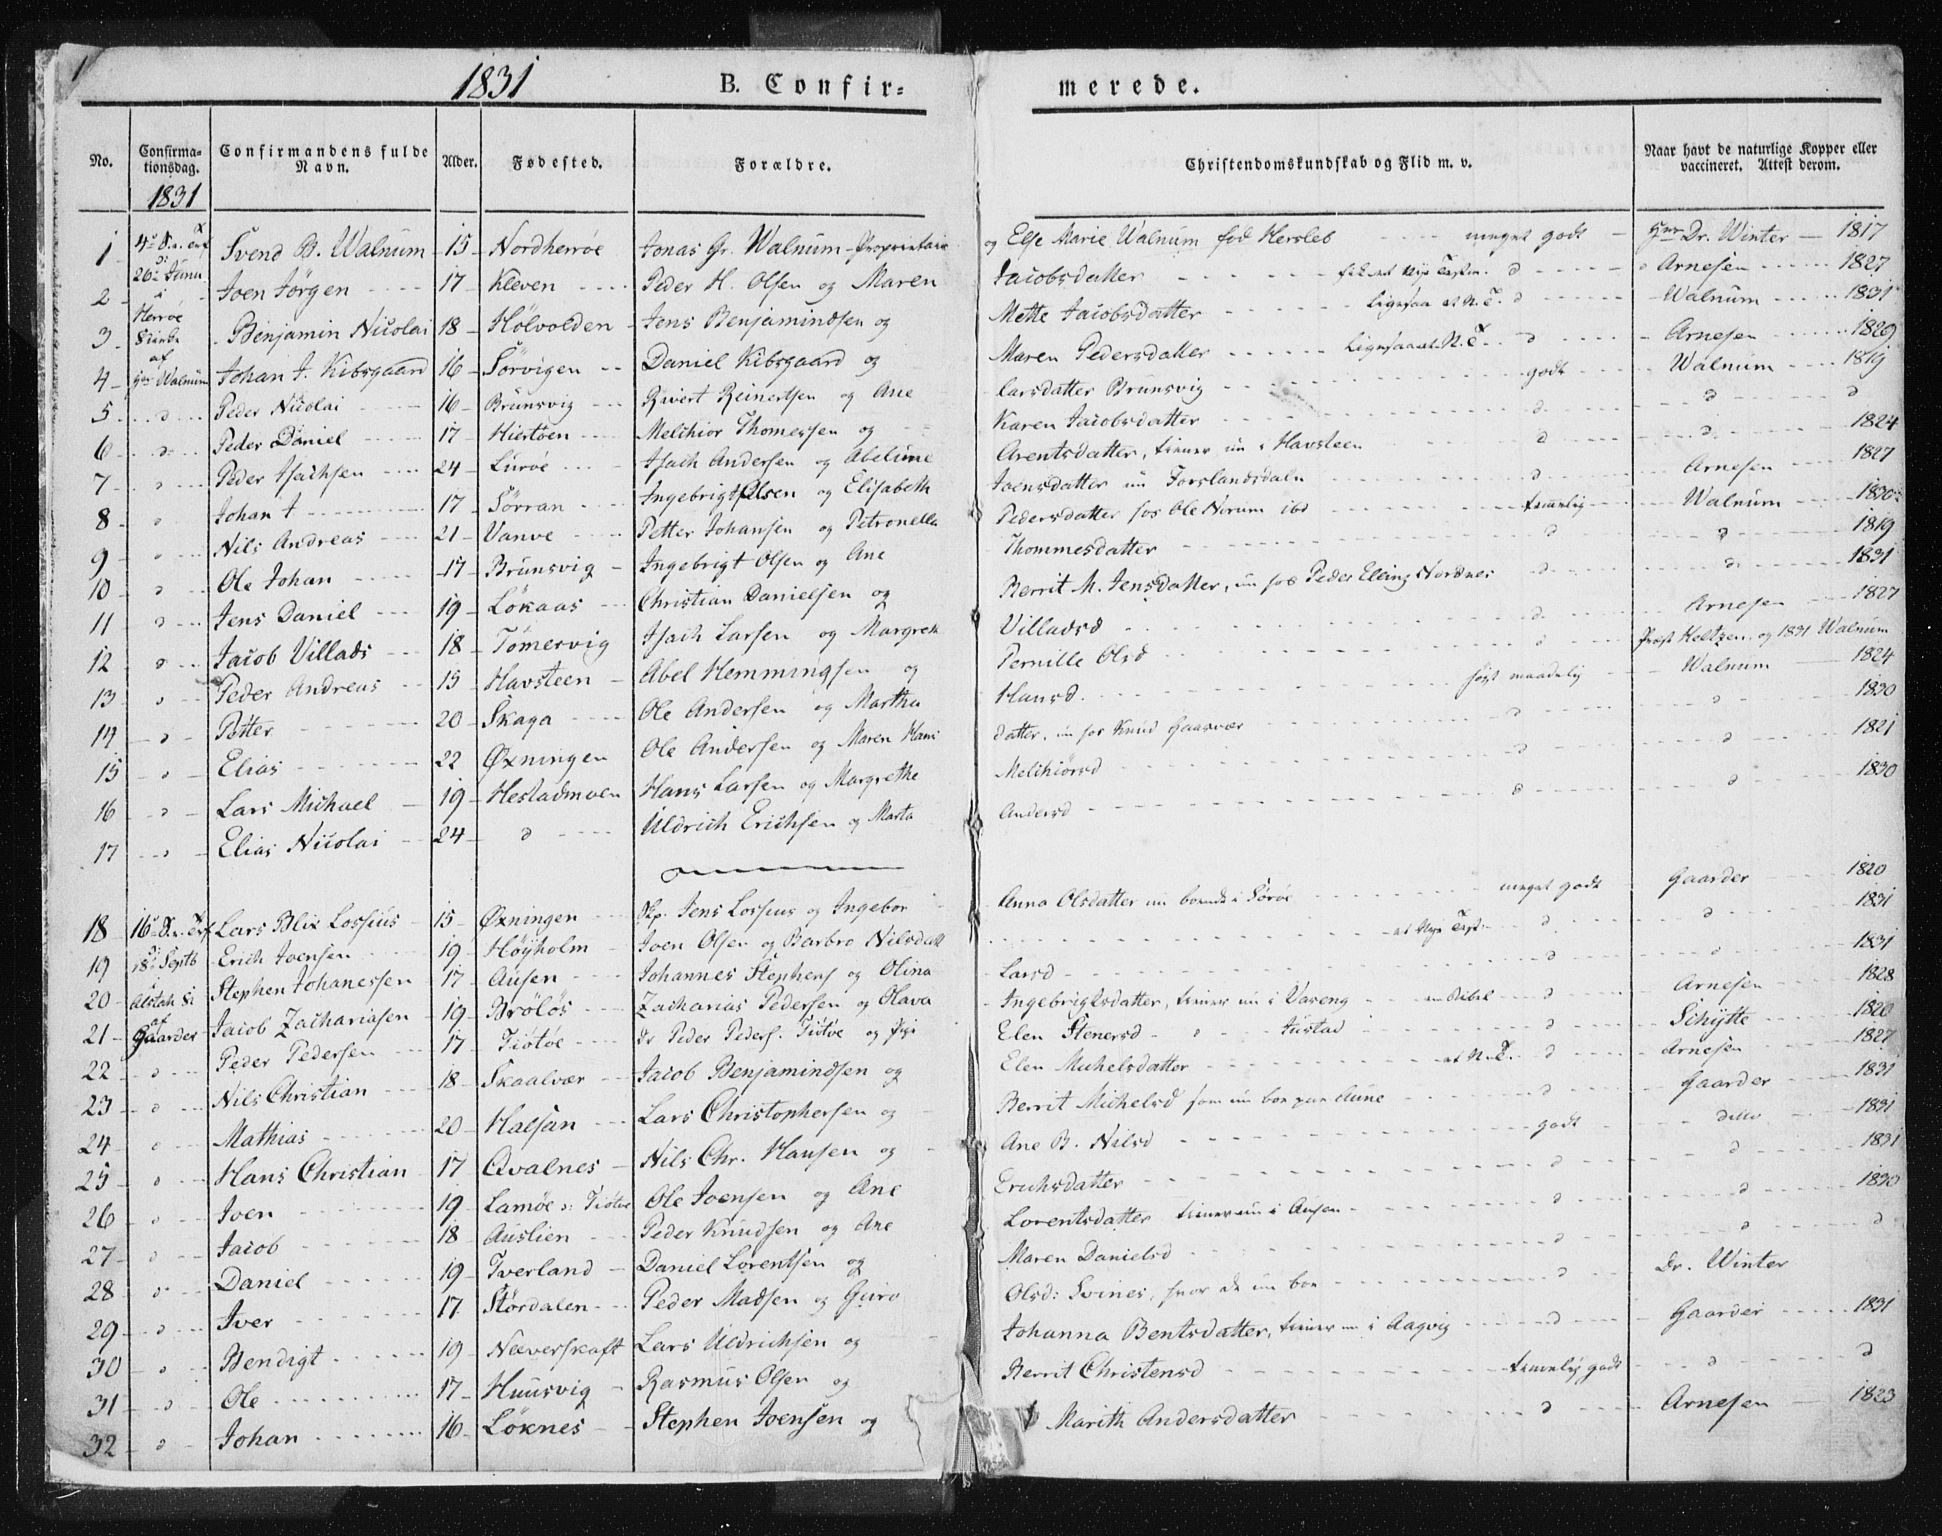 1831 B. Confir= merede.
No. Confirma-tionsdag. Confirmandens fulde Navn. Alder. Fødested. Forældre. Christendomskundskab og Flid m. v. Naar havt de naturlige Kopper eller vaccineret. Attest derom.
1831
1 4de S. e. Trf Svend B. Walnum 15 Nordherrøe Jonas Gr. Walnum Proprietair og Else Marie Walnum fød Hersleb meget godt Dr. Winter 1817
2 26de Juni i Joen Jörgen 17 Kleven Peder H. Olsen og Maren Jacobsdatter d Arnesen 1827
3 Herröe Kirke Benjamin Nicolai 18 Hölvolden Jens Benjamindsen og Mette Jacobsdatter Ligesaa et N. T. d Walnum 1831
4 af Hr Walnum Johan J. Kibsgaard 16 Sörvigen Daniel Kibsgaard og Maren Pedersdatter Ligesaa et N. T. d Arnesen 1829
5 d Peder Nicolai 16 Brunsvig Sivert Reinertsen og Ane Larsdatter Brunsvig godt Walnum 1819
6 d Peder Daniel 17 Hiertöen Melchior Thomessen og Karen Jacobsdatter d d d
7 d Peder Isachsen 24 Luröe Isach Andersen og Abelune Arentsdatter, tiener nu i Havsteen d d 1824
8 d Johan J 17 Sörran Ingebrigt Olsen og Elisabeth Joensdatter nu Forslandsdaln d Arnesen 1827
9 d Nils Andreas 21 Vanve Petter Johansen og Petronella Pedersdatter hos Ole Norum ibd temmelig Walnum 1830
10 d Ole Johan 17 Brunsvig Ingebrigt Olsen og Ane Thommesdatter d d 1819
11 d Jens Daniel 19 Lökaas Christian Danielsen og Berrit M. Jensdatter, nu hos Peder Elling Nordnes d d 1831
12 d Jacob Villads 18 Tömervig Isach Larsen og Margreth Villadsd d Arnesen 1827
13 d Peder Andreas 15 Havsteen Abel Hemmingsen og Pernille Olsd d Prost Heltzen og 1831 Walnum
14 d Petter 20 Skaga Ole Andersen og Martha Hansd. høyst maadelig Walnum 1824
15 d Elias 22 Øxningen Ole Andersen og Maren Hans datter, nu hos Knud Gaasvær d d 1830
16 d Lars Michael 19 Hestadmoen Hans Larsen og Margrethe Melchiorsd d d 1821
17 d Elias Nicolai 24 d Uldrich Erichsen og Marta Andersd d d 1830
18 16de S. e. Trf Lars Blix Lossius 15 Øxningen Jens Lossius og Ingebor Anna Olsdatter nu boende i Söröe meget godt Gaarder 1820
19 18de Septb Erich Joensen 19 Höyholm Joen Olsen og Barbro Nilsdatt et Nye Test. d d 1831
20 Alstah Ki Stephen Johanessen 17 Ausen Johannes Stephens og Olina Larsd d d 1831
21 af Gaarder Jacob Zachariasen 19 Brölös Zacharias Pedersen og Olava Ingebrigtsdatter, tiener nu i Vareng en Bibel d Arnesen 1828
22 d Peder Pedersen 17 Tiötöe Peder Peders. Tiötöe og Elen Stenersd d Schytte 1820
23 d Nils Christian 18 Skaalvær Jacob Benjamindsen og Elen Michelsdatter et N. T. d Arnesen 1827
24 d Mathias 20 Halsan Lars Christophersen og Berrit Michelsd som nu boe paa Aune d Gaarder 1831
25 d Hans Christian 17 Qvalnes Nils Chr. Hansen og Ane B. Nilsd godt ditto 1831
26 d Iven 19 Lamöe Tiötöe Ole Ivensen og Ane Erichsdatter d d 1831
27 d Jacob 18 Auslien Peder Knudsen og Ane Lorentsdatter tiener nu i Ausen d d 1830
28 d Daniel 19 Tverland Daniel Lorentsen og Maren Danielsd d d d
29 d Iver 17 Stördalen Peder Madsen og Guro Olsd: Svines, hvor de nu boe d Dr. Winter
30 d Bendigt 19 Næverskaft Lars Uldrichsen og Johanna Bentsdatter, tiener nu i Aagvig d Gaarder 1831
31 d Ole 17 Huusvig Rasmus Olsen og Berrit Christensd temmelig godt d d
32 d Johan 16 Löknes Stephen Ivensen og Marith Andersdatter d Arnesen 1823